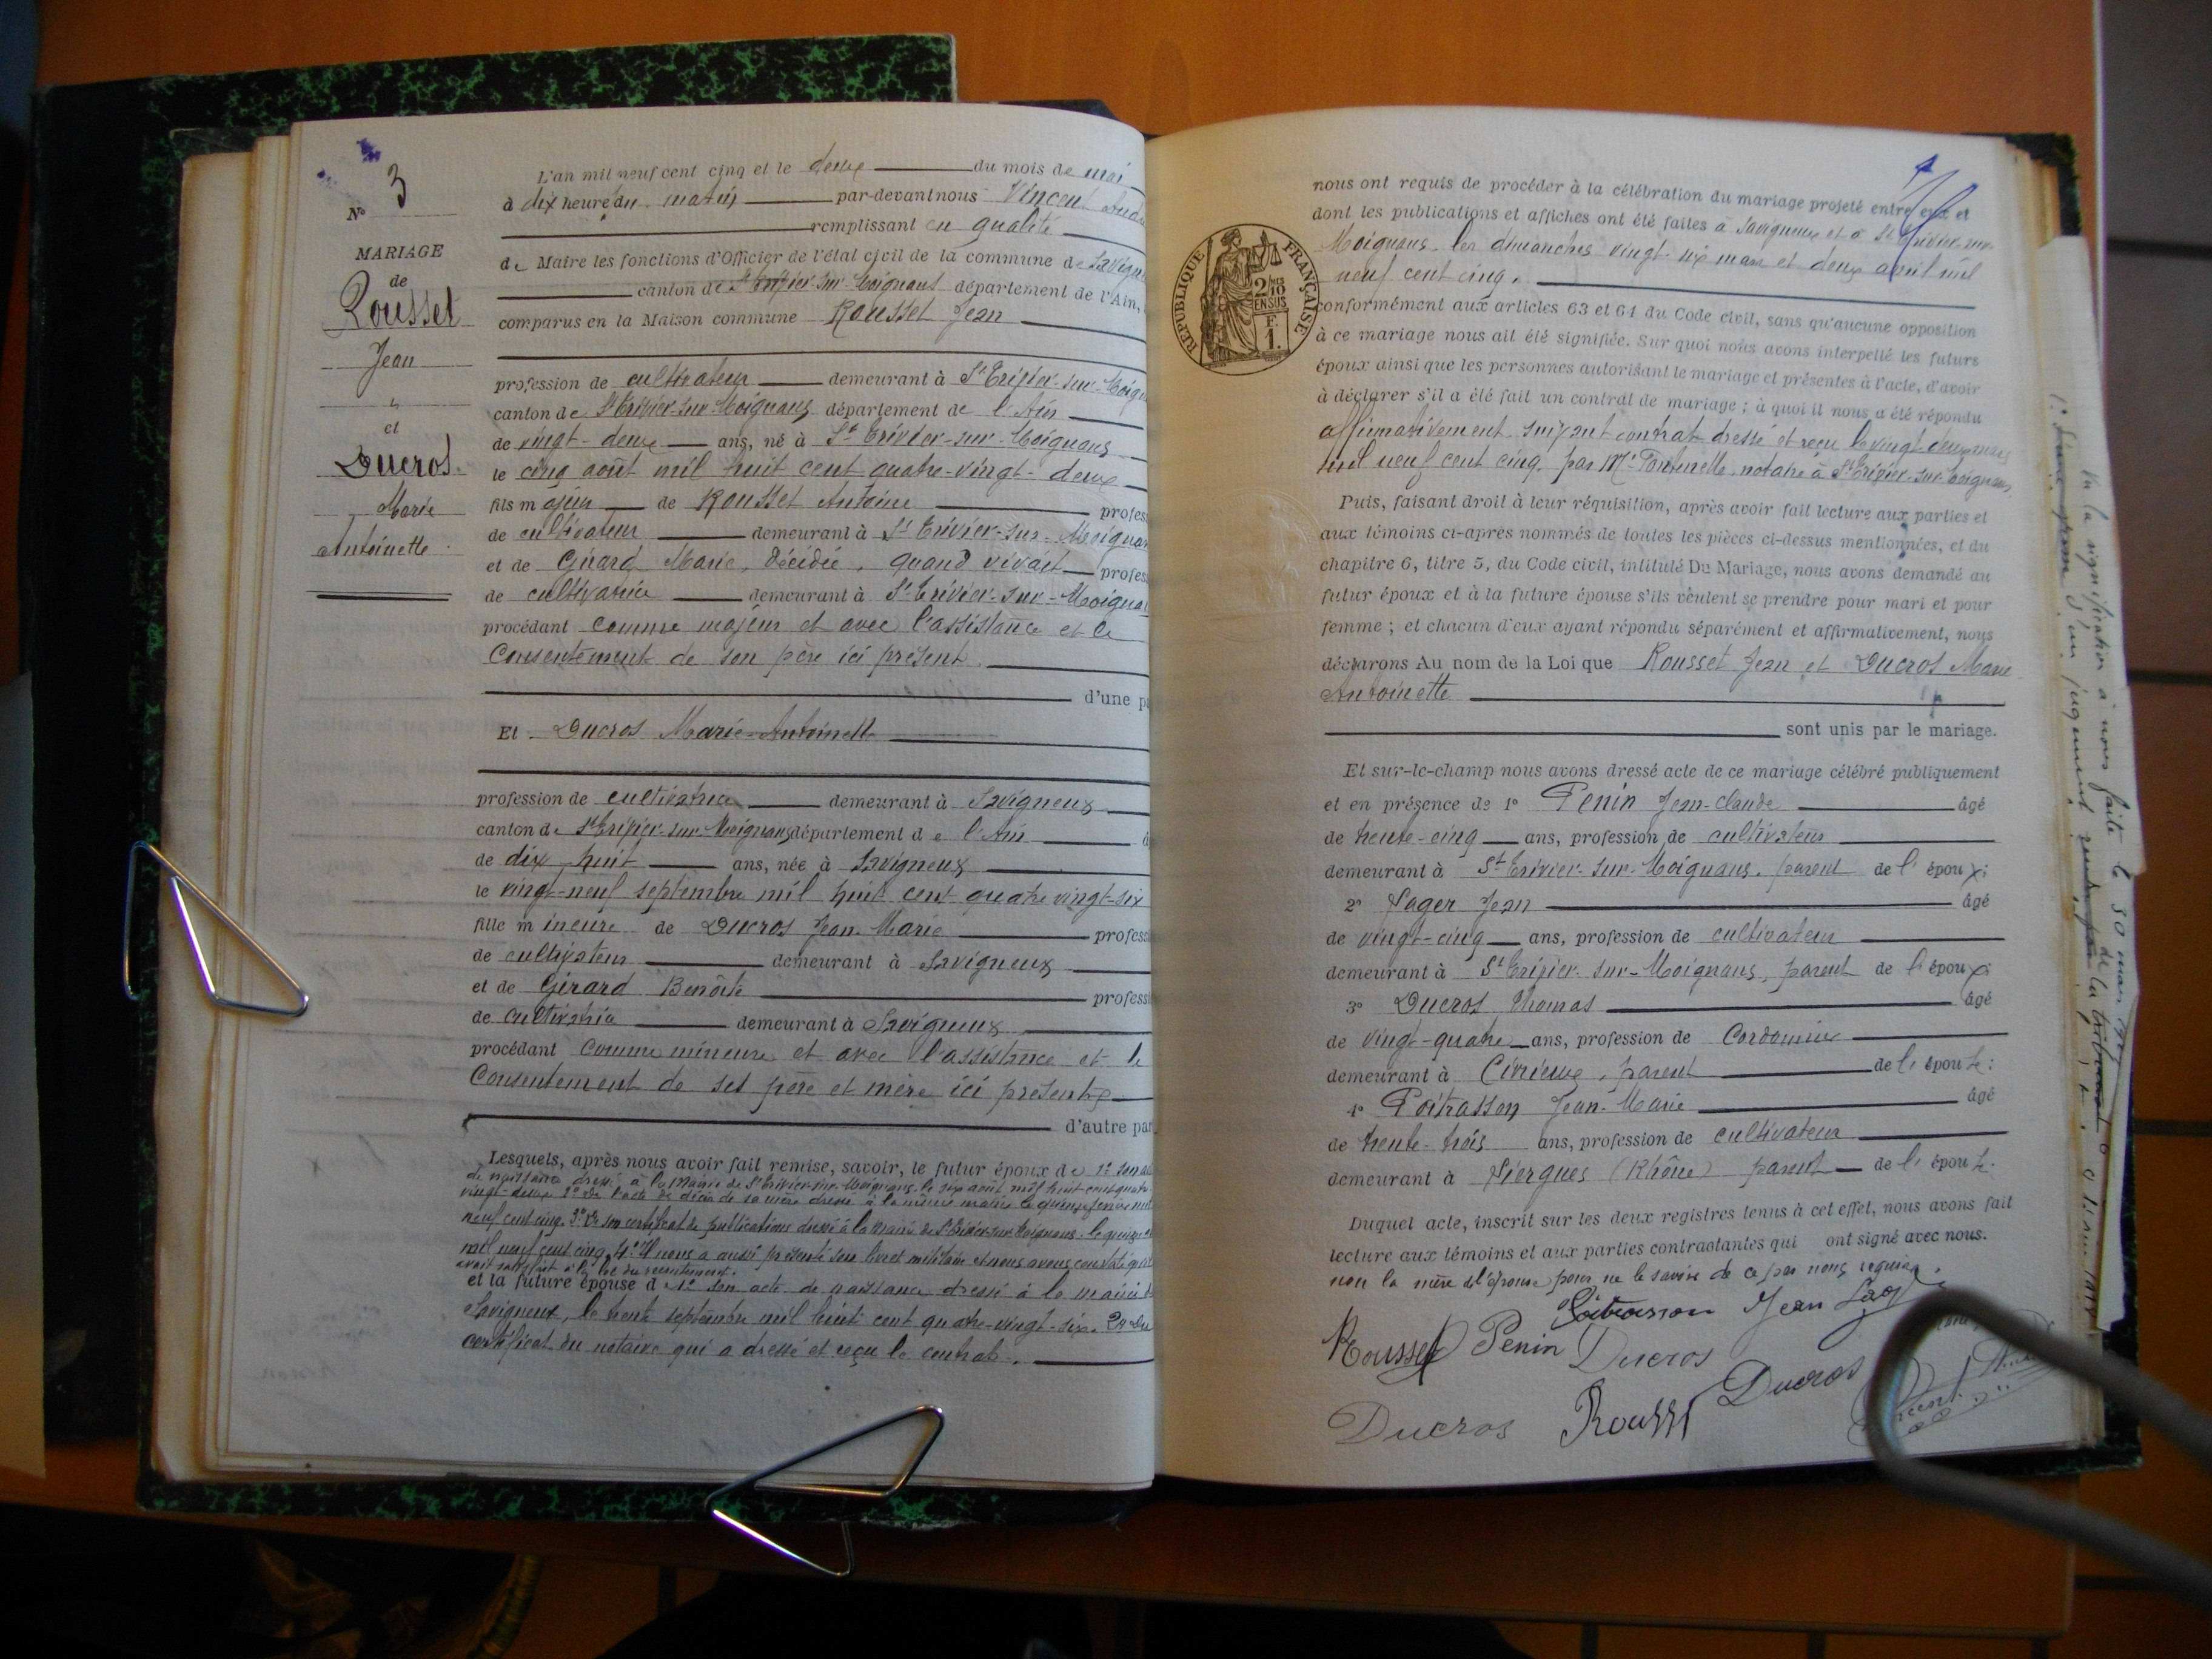 N° 3
MARIAGE
de
Rousset
Jean
et
Ducros
Marie
Antoinette
L'an mil neuf cent cinq et le deux du mois de mai
à dix heure du matin par-devant nous Vincent
remplissant en qualité
de Maire les fonctions d'Officier de l'état civil de la commune de Savign
canton de St Trivier-sur-Moignans département de l'Ain,
comparus en la Maison commune Rousset Jean
profession de cultivateur demeurant à St Trivier-sur-Moign
canton de St Trivier-sur-Moignans département de l'Ain
de vingt-deux ans, né à St Trivier-sur-Moignans
le cinq août mil huit cent quatre-vingt-deux
fils majeur de Rousset Antoine profess
de cultivateur demeurant à St Trivier-sur-Moignan
et de Girard Marie, décédée, quand vivait profess
de cultivatrice demeurant à St Trivier-sur-Moignan
procédant comme majeur et avec l'assistance et le
Consentement de son père ici présent.
d'une p
Et Ducros Marie-Antoinette
profession de cultivatrice demeurant à Savigneux
canton de St Trivier-sur-Moignans département de l'Ain
de dix huit ans, née à Savigneux
le vingt-neuf septembre mil huit cent quatre vingt-six
fille mineure de Ducros Jean-Marie profess
de cultivateur demeurant à Savigneux
et de Girard Benoîte profess
de cultivatrice demeurant à Savigneux
procédant comme mineure et avec l'assistance et le
Consentement de ses père et mère ici présents
d'autre par
Lesquels, après nous avoir fait remise, savoir, le futur époux de 1° son
de naissance dressé à la mairie de St Trivier-sur-Moignans, le six août mil huit cent quatre
vingt-deux 2° de l'acte de décès de sa mère dressé à la même mairie le quinze
neuf cent cinq. 3° De son certificat de publications dressé à la mairie de St Trivier-sur-Moignans, le quinze
mil neuf cent cinq. 4° Il nous a aussi présenté son livret militaire et nous avons constaté qu'il
avait satisfait à la loi du recrutement.
et la future épouse d 1° son acte de naissance dressé à la mairie d
Savigneux, le trente septembre mil huit cent quatre-vingt-six. 2° du
certificat du notaire qui a dressé et reçu le contrat.
nous ont requis de procéder à la célébration du mariage projeté entre eux et
dont les publications et affiches ont été faites à Savigneux et à St Trivier-sur-
Moignans, les dimanches vingt-six mars et deux avril mil
neuf cent cinq.
RÉPUBLIQUE FRANÇAISE
2/10 EN SUS
conformément aux articles 63 et 64 du Code civil, sans qu'aucune opposition
à ce mariage nous ait été signifiée. Sur quoi nous avons interpellé les futurs
époux ainsi que les personnes autorisant le mariage et présentes à l'acte, d'avoir
à déclarer s'il a été fait un contrat de mariage ; à quoi il nous a été répondu
affirmativement, suivant contrat dressé et reçu le vingt deux mars
mil neuf cent cinq, par Me notaire à St Trivier-sur-Moignans
Puis, faisant droit à leur réquisition, après avoir fait lecture aux parties et
aux témoins ci-après nommés de toutes les pièces ci-dessus mentionnées, et du
chapitre 6, titre 5, du Code civil, intitulé Du Mariage, nous avons demandé au
futur époux et à la future épouse s'ils veulent se prendre pour mari et pour
femme ; et chacun d'eux ayant répondu séparément et affirmativement, nous
déclarons Au nom de la Loi que Rousset Jean et Ducros Marie
Antoinette
sont unis par le mariage.
Et sur-le-champ nous avons dressé acte de ce mariage célébré publiquement
et en présence de 1° Penin Jean-Claude âgé
de trente-cinq ans, profession de cultivateur
demeurant à St Trivier-sur-Moignans, parent de l'époux;
2° Sager Jean âgé
de vingt-cinq ans, profession de cultivateur
demeurant à St Trivier-sur-Moignans, parent de l'époux;
3° Ducros Thomas âgé
de vingt-quatre ans, profession de Cordonnier
demeurant à Civrieux, parent de l'épouse;
4° Poitrasson Jean-Marie âgé
de trente-trois ans, profession de cultivateur
demeurant à Fiergues (Rhône) parent de l'épouse.
Duquel acte, inscrit sur les deux registres tenus à cet effet, nous avons fait
lecture aux témoins et aux parties contractantes qui ont signé avec nous.
non la mère de l'épouse pour ne le savoir de ce par nous requise.
Poitrasson Jean Sager
Rousset Penin Ducros
Ducros Rousset Ducros
Vincent
Vu la signification à nous faite le 30 mars
d'un jugement de la tribunal